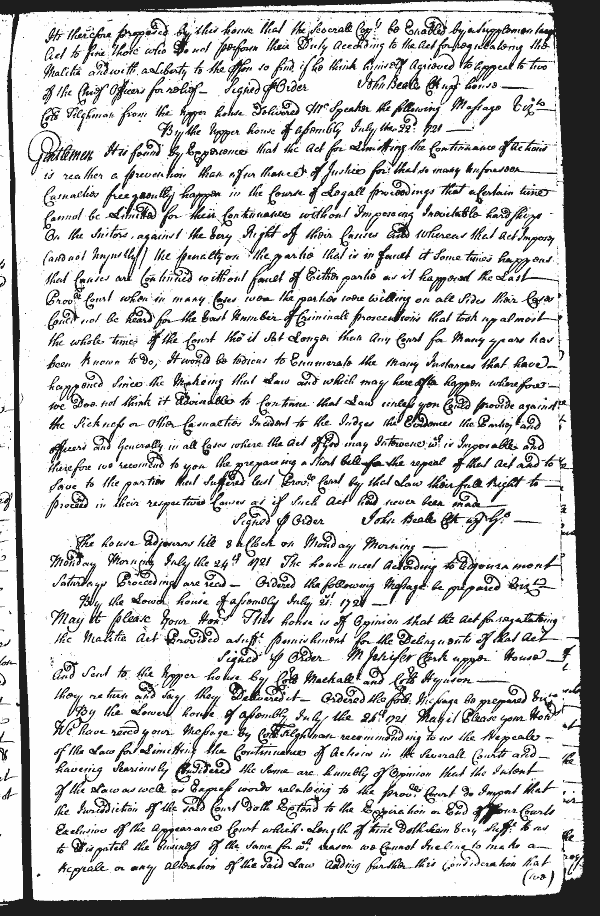 Its therefore proposed by this house that the Severall Coty. be Enabled by a Supplementary
Act to fine those who Do not perform their Duty According to the Act for regulating the
Malitia and with a Liberty to the offen so find if he think himself Agrieved to Appeal to two
of the Chief Officers for releif Signed p Order John Beale Ck upr house
Coll Tilghman from the upper house Delivered Mr Speaker the following Message Vizt
By the upper house of Assembly July the 22d 1721
Gentlemen It is found by Experience that the Act for Limitting the Continuance of Actions
is reather a prevention than a furtherance of Justice for that so many unforeseen
Casualties frequently happen in the Course of Legall proceedings that a Certain time
Cannot be Limited for their Continuance without Imposing Inevitable hardships
On the Suitors, against the Very Right of their Causes And whereas that Act Imposes
(and not Unjustly) the penalty on the partie that is in fault it Some times happens
that Causes are Continued without fault of Either partie as it happened the Last
Provll Court when in many Cases were the parties were willing on all Sides their Cases
Could not be heard for the Vast Number of Criminall prosecutions that took up almost
the whole time of the Court tho it Sat Longer then Any Court for Many years has
been Known to do, It would be tedious to Enumerate the many Instances that have
happened Since the Making that Law and which may hereafter happen wherefore
we Doe not think it Adviseable to Continue that Law unless you Could provide against
the Sickness or other Casualties Incident to the Judges the Evidences the Parties and
officers and Generally in all Cases where the Act of God may Intervene wch is Impossible and
therefore we recomend to you the preparing a Short bill for the repeal of that Act and to
Save to the parties that Suffered last Provll Court by that Law their full Right to
proceed in their respective Causes as if Such Act had never been made
Signed p Order John Beale Clk up hs
The house Adjourns till 8 aClock on Monday Morning
Monday Morning July the 24th 1721 The house meet According to Adjournment
Saturdays Proceeding are read Ordered the following Message be prepared Vizt
By the Lower house of assembly July 1721
May it please your Honrs This house is of Opinion that the Act for regulateing
the Malitia Act Provided a suft. punishment for the Delinquents of that Act
Signed p Order M Jenifer Clerk upper House
And Sent to the upper house by Coll Mackall and Coll Hynson
they return and say they Delivered it Ordered the foll Message be prepared Vizt
By the Lower house of assembly July the 24th 1721 May it Please your Honrs
We have reced your Message by Coll Tilghman recommending to us the Repeale
of the Law for Limitting the Continuance of Actions in the Severall Courts and
haveing Seariously Considered the same are humbly of Opinion that the Intent
of the Law as well as Express words relateing to the Provll Court do Import that
the Jurisdiction of the said Court Doth Extend to the Expiration or End of four Courts
Exclusive of the Appearance Court which Length of time Doth seem Very Suft. to us
to Dispatch the business of the same for wch reason we Cannot Incline to make a
Repeale or any Alteration of the Said Law Adding further this Consideration that
(we)